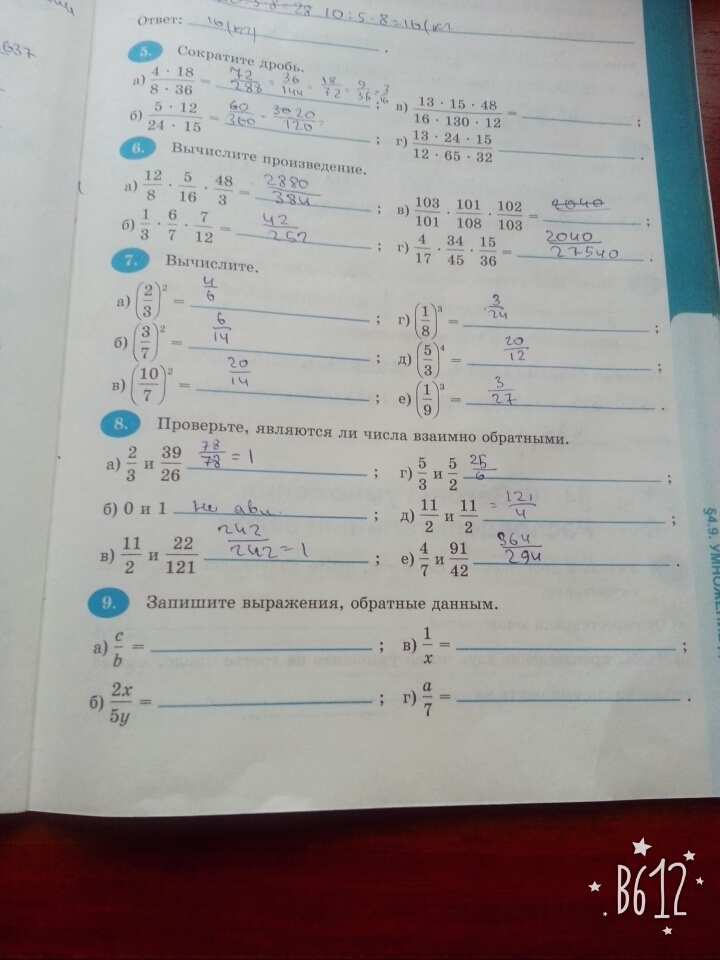 10 : 5 · 8 = 16 (кг
Ответ: 16 (кг) .
637
5. Сократите дробь.
а) (4 · 18)/(8 · 36) = 72/288 = 36/144 = 18/72 = 9/36 = 3/16 ; в) (13 · 15 · 48)/(16 · 130 · 12) = ;
б) (5 · 12)/(24 · 15) = 60/360 = 20/120 = ; г) (13 · 24 · 15)/(12 · 65 · 32) .
6. Вычислите произведение.
а) 12/8 · 5/16 · 48/3 = 2880/384 ; в) 103/101 · 101/108 · 102/103 = 2040 ;
б) 1/3 · 6/7 · 7/12 = 42/252 ; г) 4/17 · 34/45 · 15/36 = 2040/27540 .
7. Вычислите.
а) (2/3)² = 4/6 ; г) (1/8)³ = 3/24 ;
б) (3/7)² = 6/14 ; д) (5/3)⁴ = 20/12 ;
в) (10/7)² = 20/14 ; е) (1/9)³ = 3/27 .
8. Проверьте, являются ли числа взаимно обратными.
а) 2/3 и 39/26 78/78 = 1 ; г) 5/3 и 5/2 25/6 ;
б) 0 и 1 не явл. ; д) 11/2 и 11/2 = 121/4 ;
в) 11/2 и 22/121 242/242 = 1 ; е) 4/7 и 91/42 364/294 .
9. Запишите выражения, обратные данным.
а) c/b = ; в) 1/x = ;
б) 2x/5y = ; г) a/7 = .
§4.9. УМНОЖЕН
B612